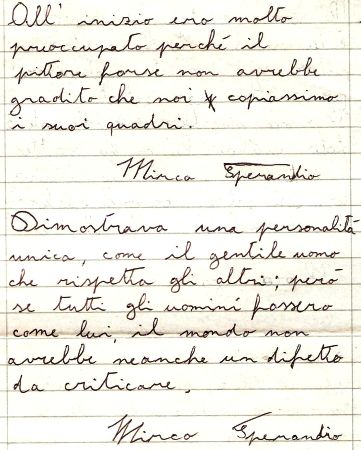 All' inizio ero molto
preoccupato perché il
pittore forse non avrebbe
gradito che noi copiassimo
i suoi quadri.
Mirco Sperandio
Dimostrava una personalità
unica, come il gentile uomo
che rispetta gli altri; però
se tutti gli uomini fossero
come lui, il mondo non
avrebbe neanche un difetto
da criticare.
Mirco Sperandio